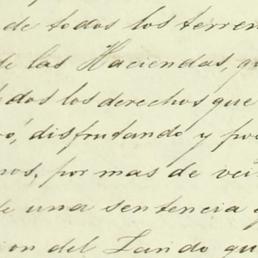 de todos los terren
de las Haciendas, qu
todos los derechos que
ó, disfrutando y po
nos, por mas de vei
de una sentencia e
ion del Lando qu